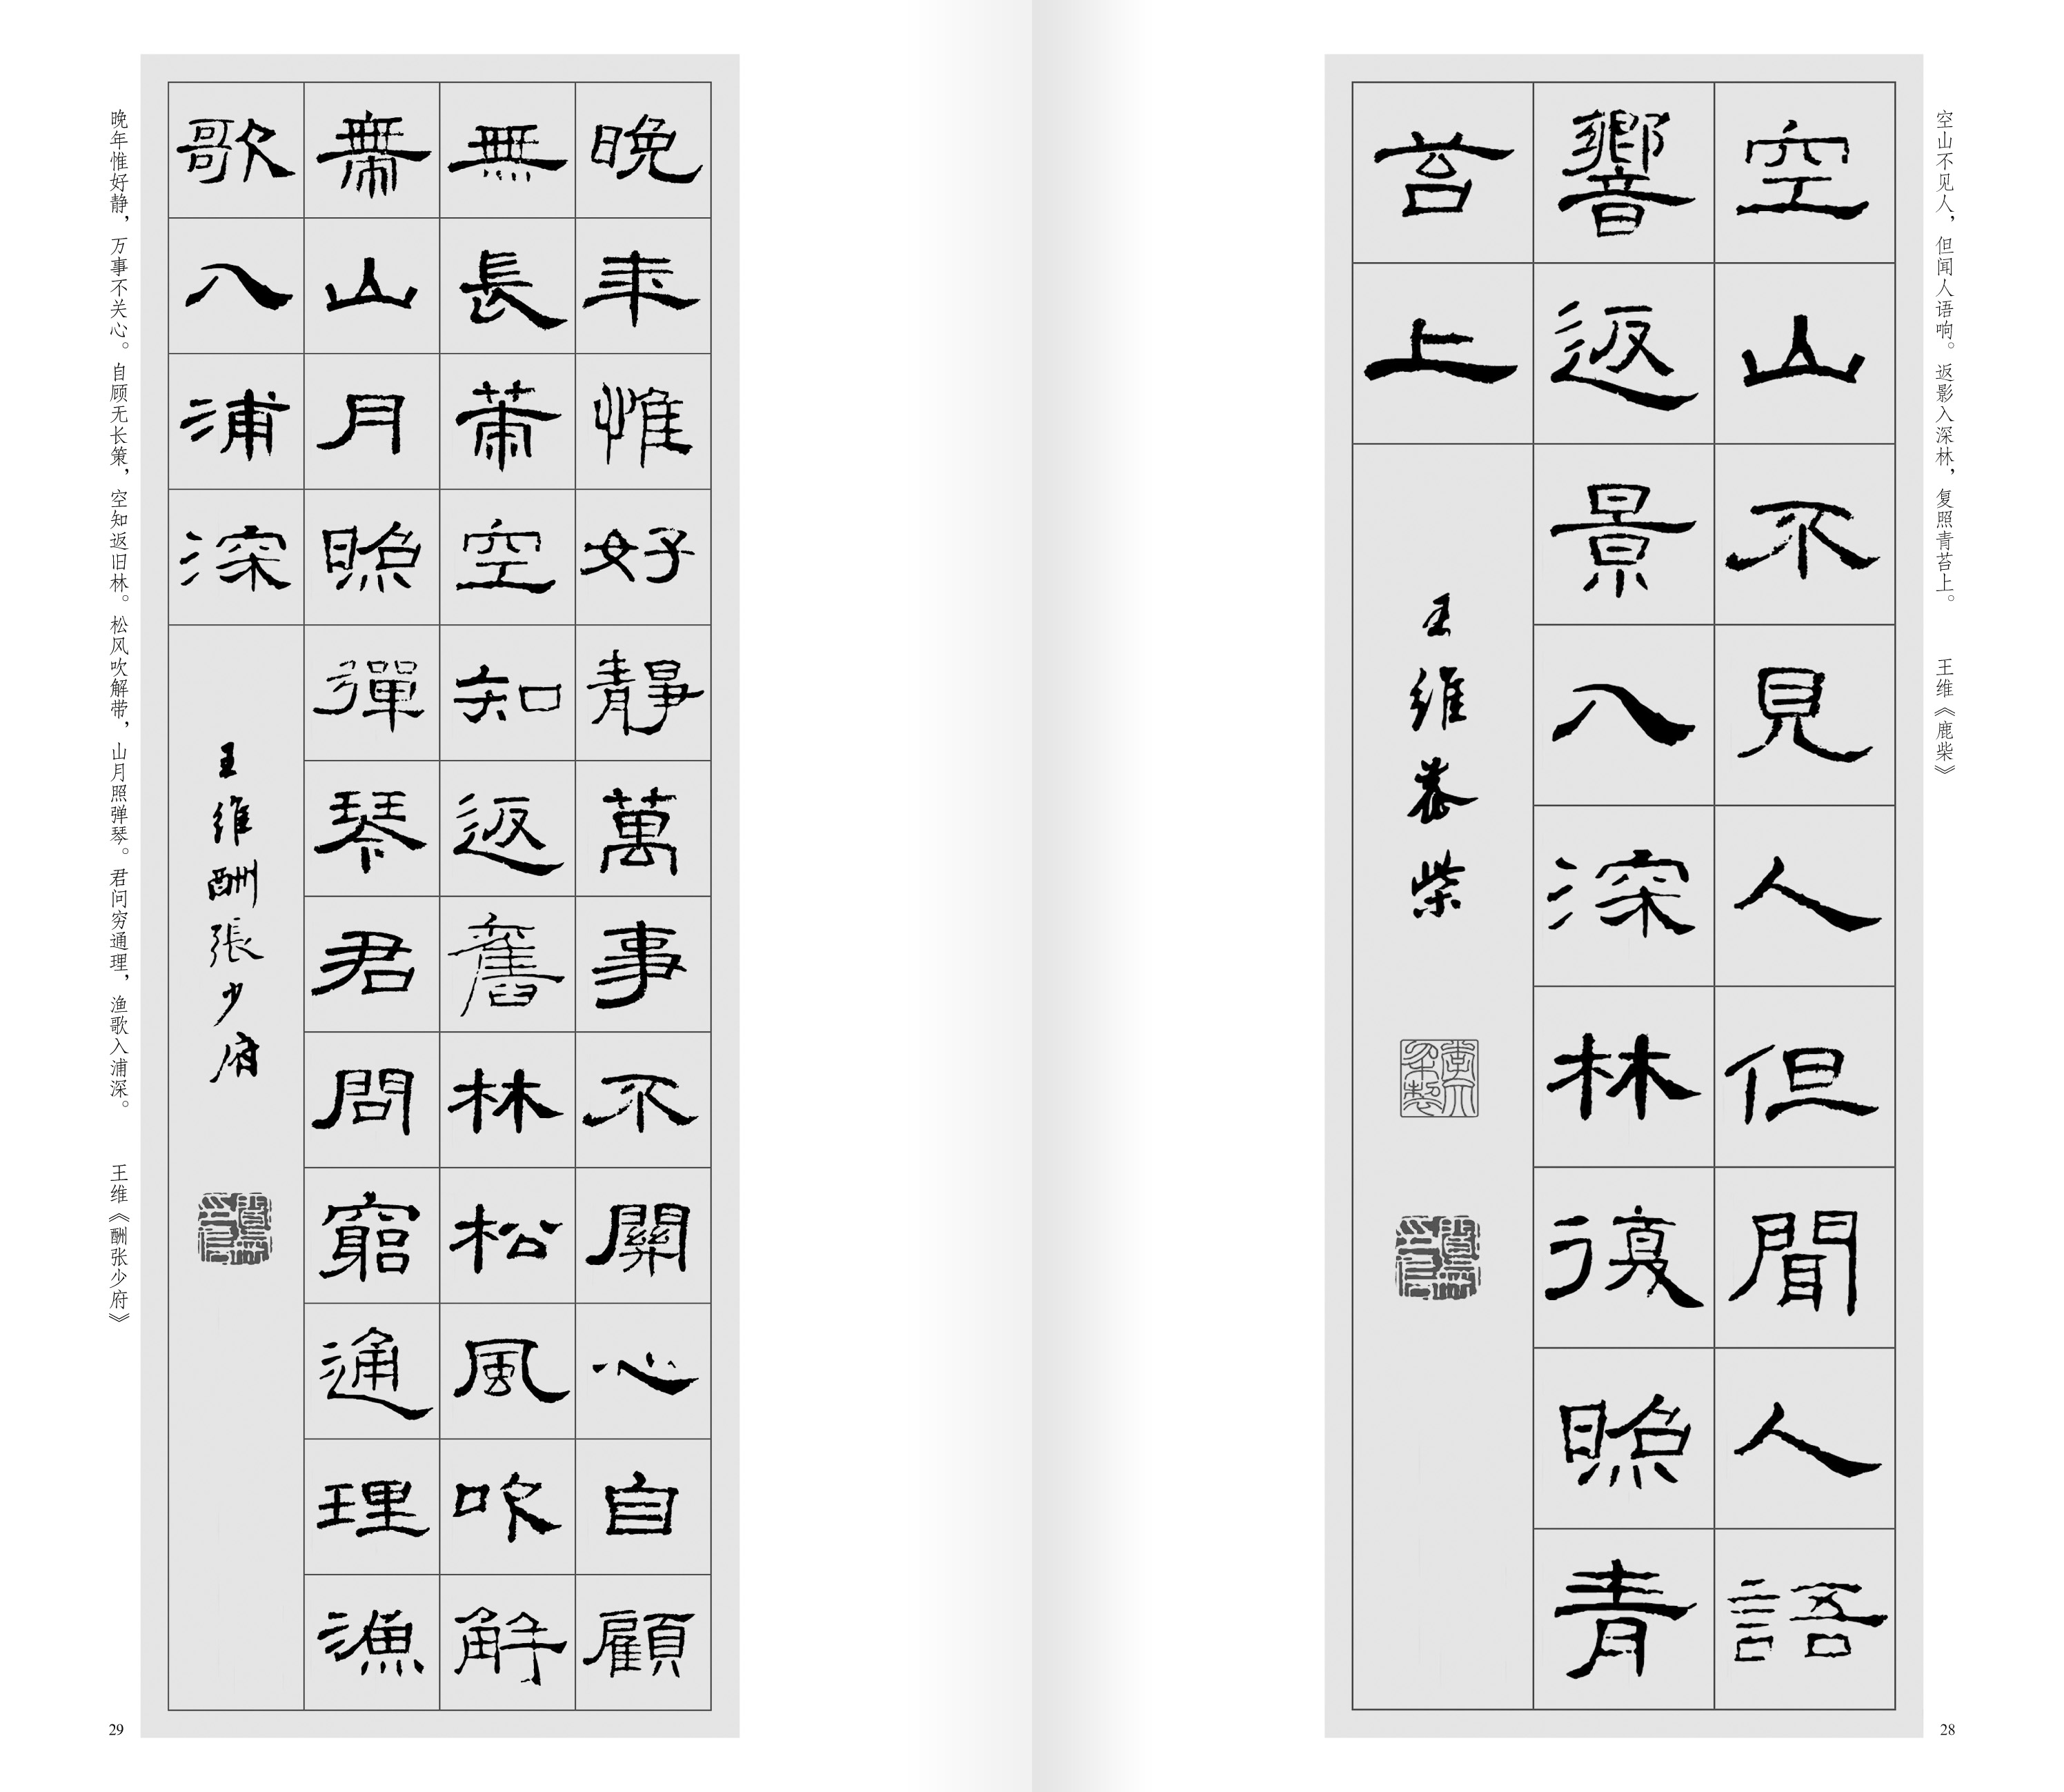 空山不见人，但闻人语响。返影入深林，复照青苔上。　王维《鹿柴》
空山不見人但聞人語
響返景入深林復照青
苔上
王維鹿柴
28
晚年惟好靜萬事不關心自顧
無長策空知返舊林松風吹解
帶山月照彈琴君問窮通理漁
歌入浦深
王維酬張少府
晚年惟好静，万事不关心。自顾无长策，空知返旧林。松风吹解带，山月照弹琴。君问穷通理，渔歌入浦深。　王维《酬张少府》
29